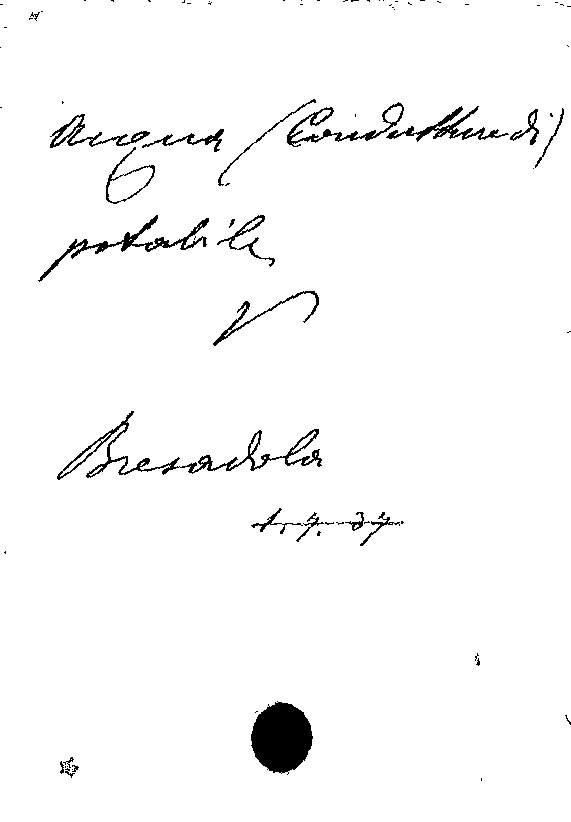 Acqua (Condutture di)
potabile
V
Bresadola
1. 7. 37